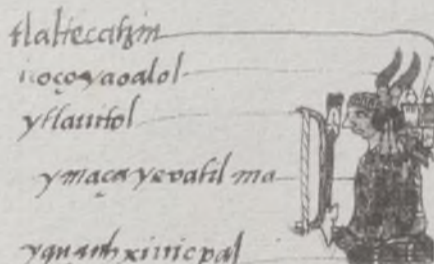 tlaltecatzin
icoçoyaoalol
ytlauitol
ymaça yevatil ma
yquauhxinicpal